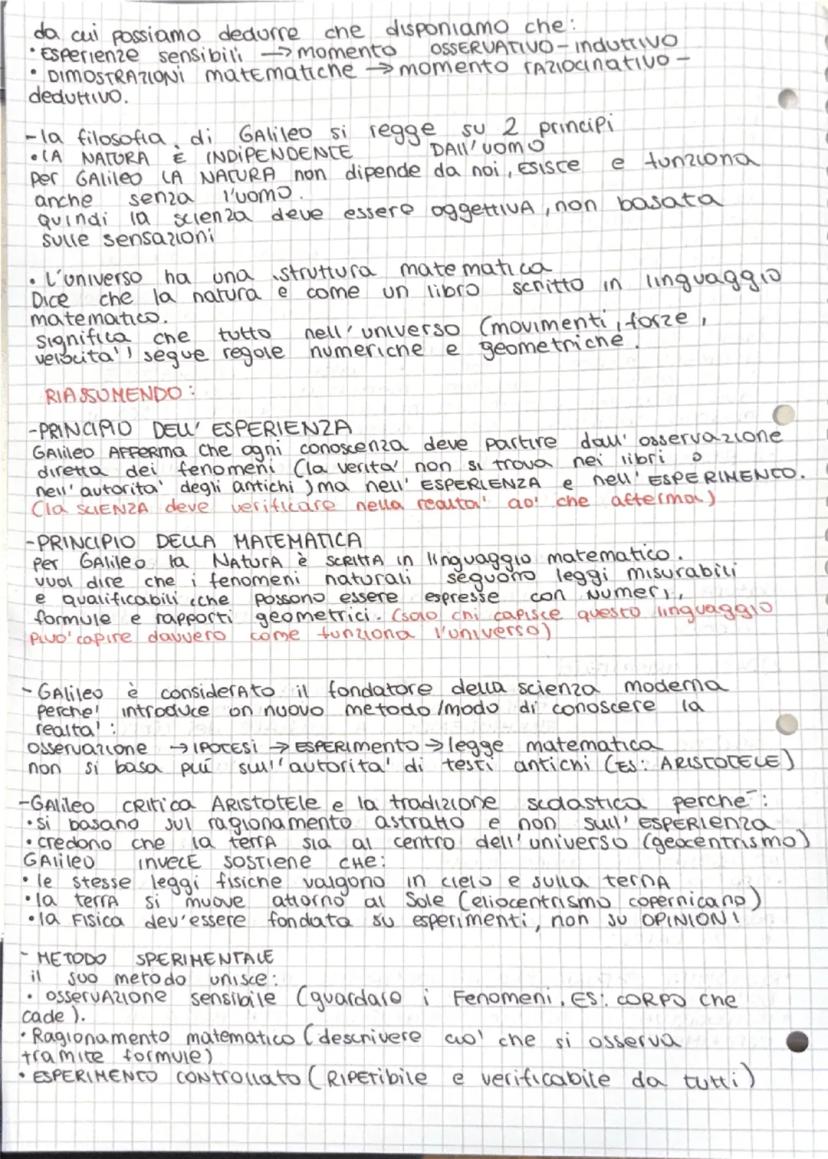 da cui possiamo dedurre che disponiamo che:
• ESPERIENZE sensibili → momento OSSERVATIVO - INDUTTIVO
• DIMOSTRAZIONI matematiche → momento RAZIOCINATIVO -
deduttivo.
- la filosofia di GALILEO si regge su 2 principi
• LA NATURA È INDIPENDENTE DALL'UOMO
Per GALILEO LA NATURA non dipende da noi, ESISTE e funziona
anche senza l'uomo.
quindi la scienza deve essere oggettiva, non basata
sulle sensazioni
• L'universo ha una struttura matematica
Dice che la natura e come un libro scritto in linguaggio
matematico.
significa che tutto nell'universo (movimenti, forze,
velocita') segue regole numeriche e geometriche.
RIASSUMENDO:
- PRINCIPIO DELL'ESPERIENZA
GALILEO AFFERMA che ogni conoscenza deve partire dall'osservazione
diretta dei fenomeni (la verita' non si trova nei libri o
nell'autorita' degli antichi) ma nell'ESPERIENZA e nell'ESPERIMENTO.
(la SCIENZA deve verificare nella realta' cio' che afferma)
- PRINCIPIO DELLA MATEMATICA
Per GALILEO la NATURA è SCRITTA in linguaggio matematico.
vuol dire che i fenomeni naturali seguono leggi misurabili
e qualificabili, che possono essere espresse con numeri,
formule e rapporti geometrici. (solo chi capisce questo linguaggio
puo' capire davvero come funziona l'universo)
- GALILEO è considerato il fondatore della scienza moderna
perche' introduce un nuovo metodo/modo di conoscere la
realta':
osservazione → IPOTESI → ESPERIMENTO → legge matematica
non si basa piú sull'autorita' di testi antichi (ES: ARISTOTELE)
- GALILEO CRITICA ARISTOTELE e la tradizione scolastica perche':
• si basano sul ragionamento astratto e non sull'ESPERIENZA
• credono che la terra sia al centro dell'universo (geocentrismo)
GALILEO INVECE SOSTIENE CHE:
• le stesse leggi fisiche valgono in cielo e sulla terra
• la terra si muove attorno al Sole (eliocentrismo copernicano)
• la FISICA dev'essere fondata su esperimenti, non su OPINIONI
- METODO SPERIMENTALE
il suo metodo unisce:
• OSSERVAZIONE sensibile (guardare i Fenomeni. ES: CORPO che
cade).
• Ragionamento matematico (descrivere cio' che si osserva
tramite formule)
• ESPERIMENTO CONTROLLATO (RIPETIBILE e verificabile da tutti)